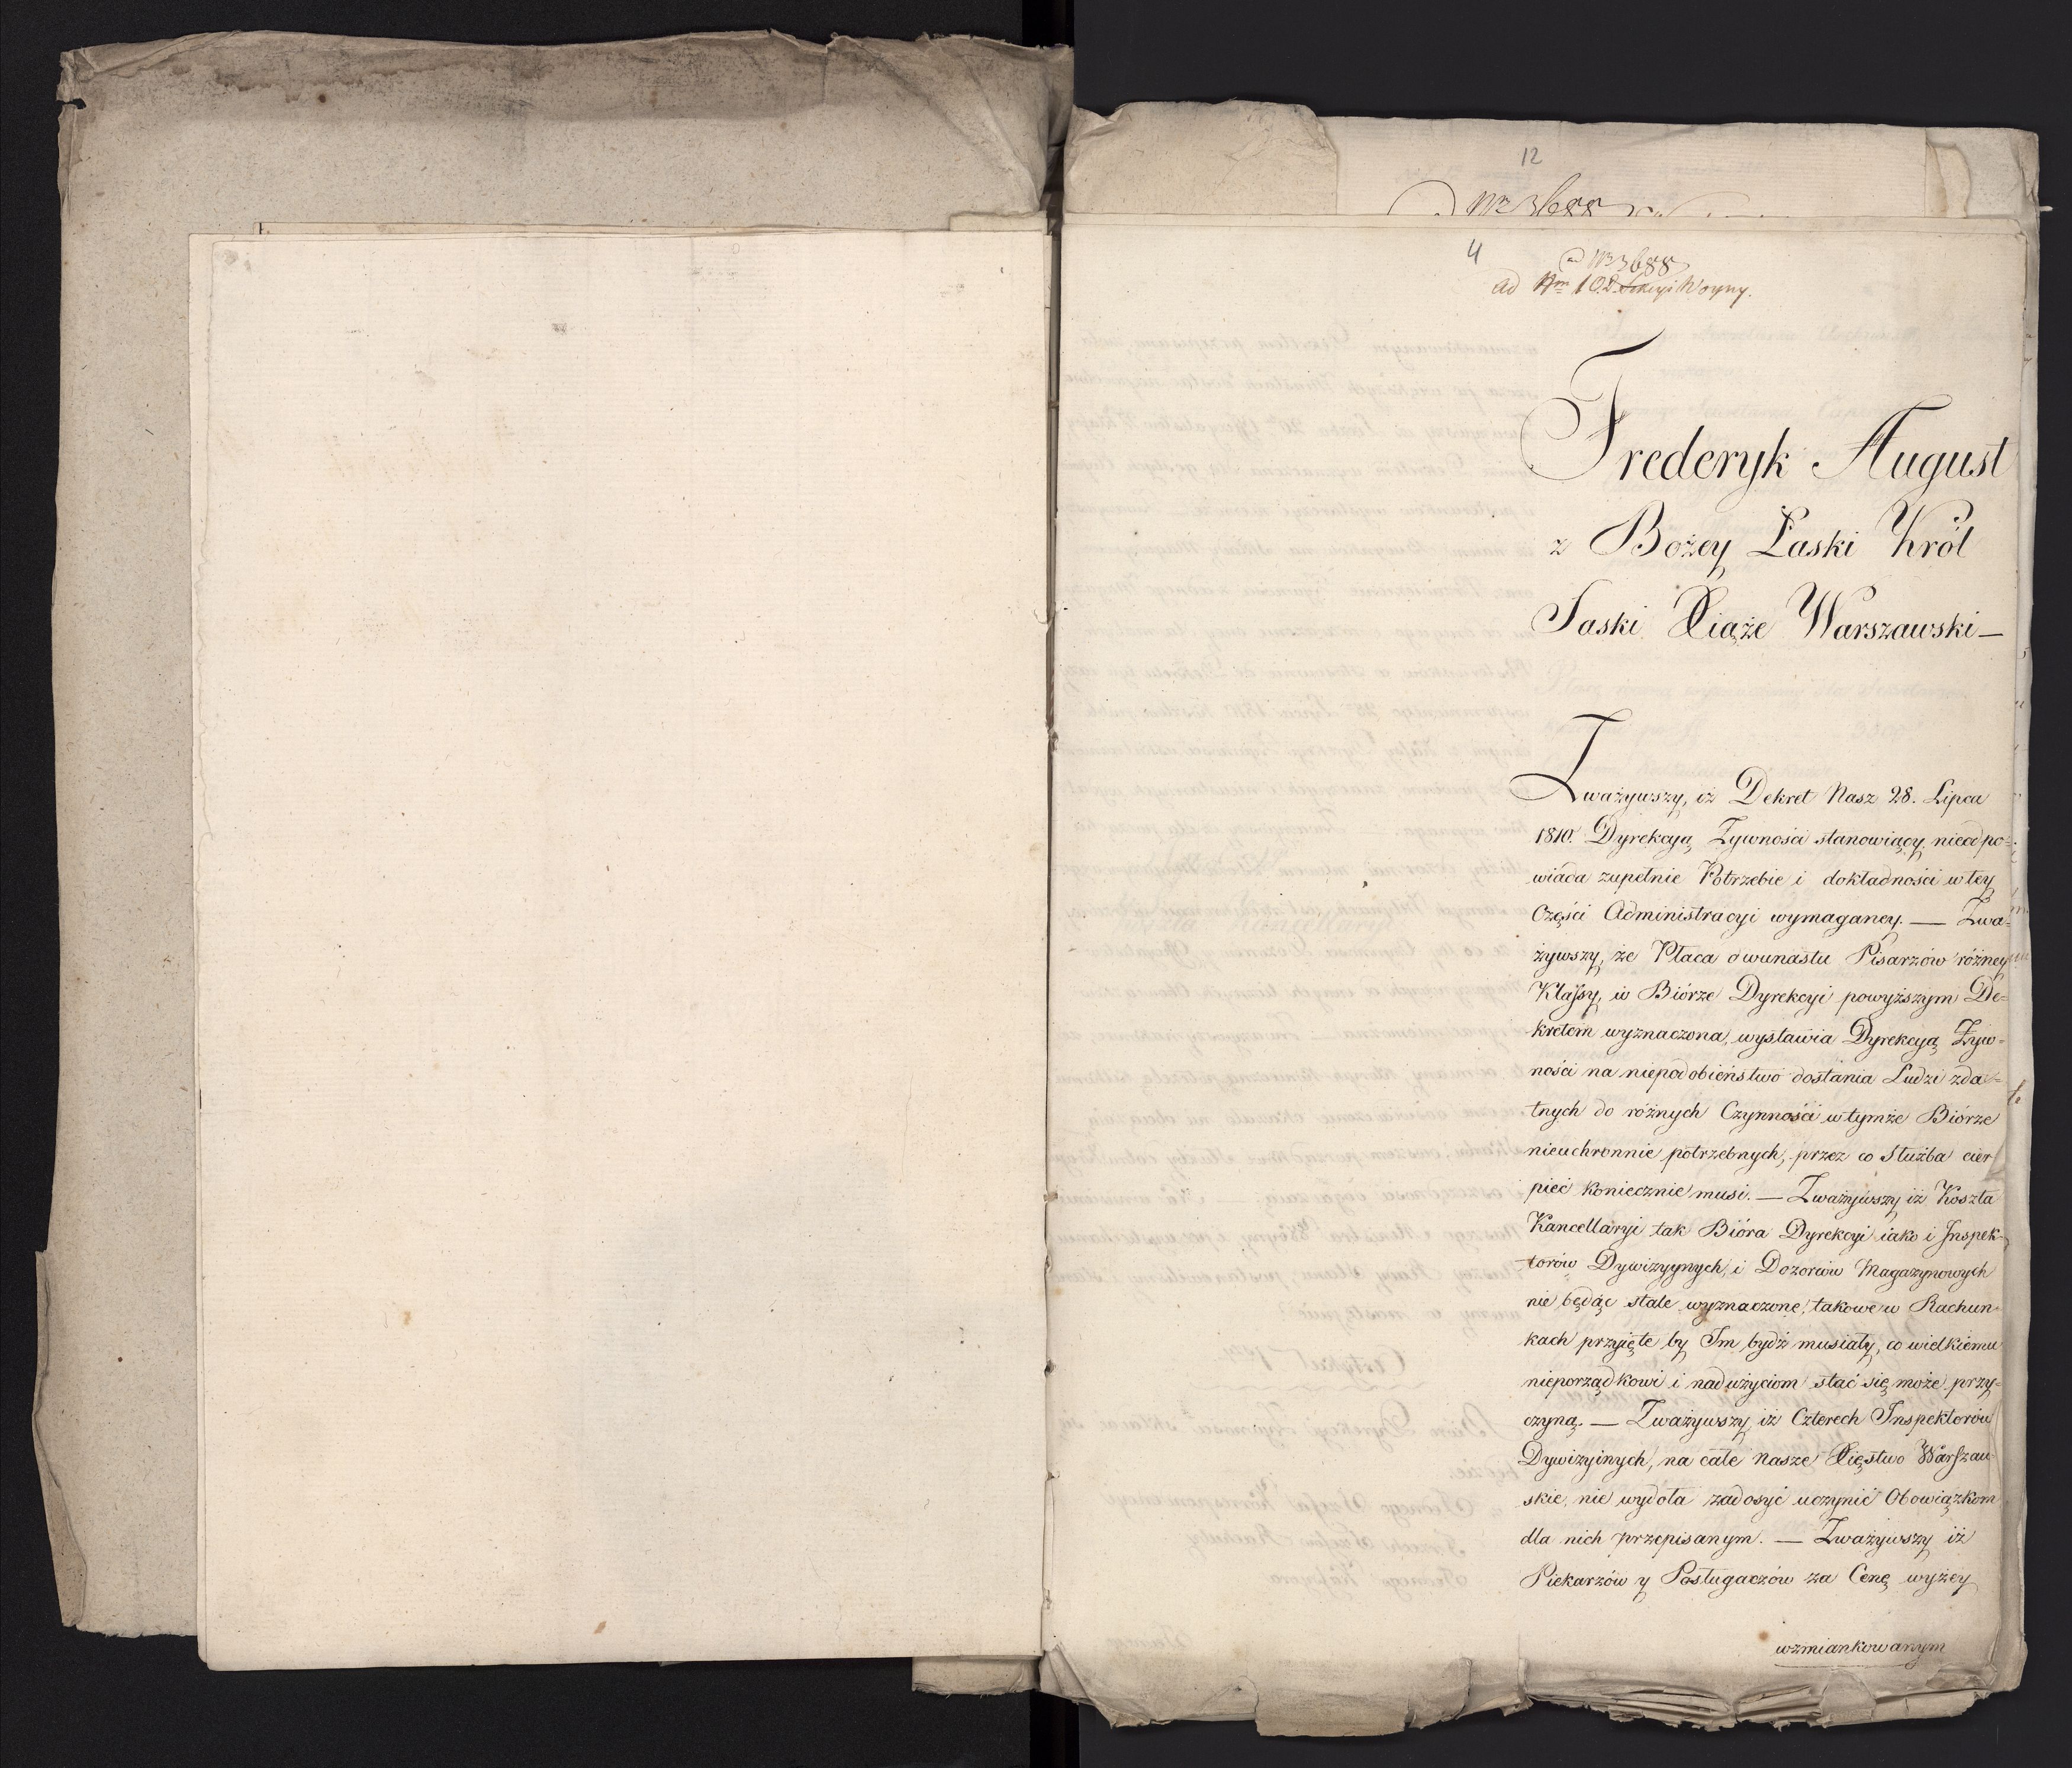 12
Nr 3688
4
ad Nr 3688
ad Nrm 102 Sekcyi Woyny.
Frederyk August
z Bożey Łaski Król
Saski Xiąże Warszawski —
Zważywszy, iż Dekret Nasz 28. Lipca
1810. Dyrekcyą Żywności stanowiący, nieodpo=
wiáda zupełnie Potrzebie i dokładności w tey
Części Administracyi wymaganey. — Zwa=
żywszy, że Płaca dwunastu Pisarzów różney
Klassy, w Biórze Dyrekcyi powyższym De=
kretem wyznaczona, wystawia Dyrekcyą Żyw=
ności na niepodobieństwo dostania Ludzi zda=
tnych do różnych Czynności w tymże Biórze
nieuchronnie potrzebnych, przez co Służba cier
pieć koniecznie musi. — Zważywszy iż Koszta
Kancellaryi tak Bióra Dyrekcyi iako i Inspek=
torów Dywizyynych, i Dozorców Magazynowych
nie będąc stale wyznaczone, takowe w Rachun=
kach przyięte by Im bydź musiały, co wielkiemu
nieporządkowi i nadużyciom stać się może przy=
czyną. — Zważywszy iż Czterech Inspektorów
Dywizyinych, na całe Nasze Xięstwo Warszaw=
skie, nie wydoła zadosyć uczynić Obowiązkom
dla nich przepisanym. — Zważywszy iż
Piekarzów y Posługaczów za Cenę wyżey
wzmiankowanym